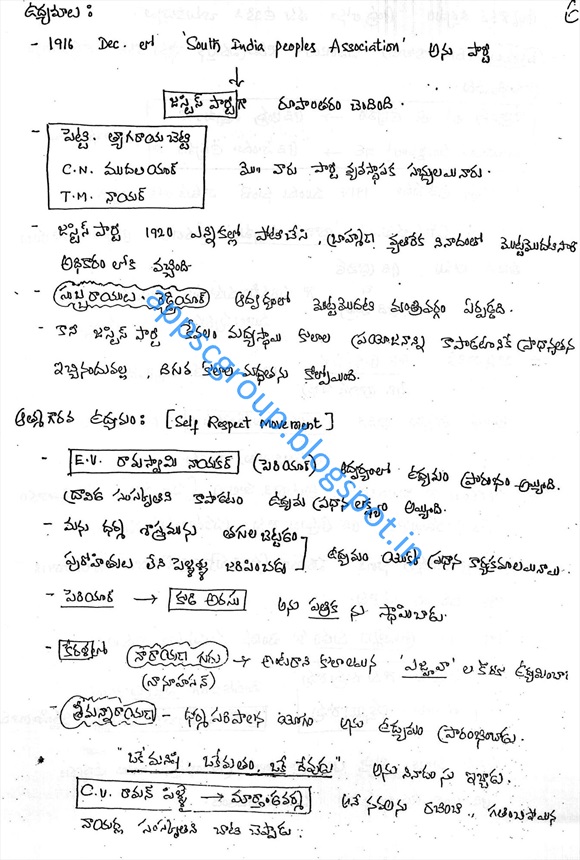 ఉద్యమాలు :
- 1916 Dec. లో 'South India peoples Association' అను పార్టీ
జస్టిస్ పార్టీగా రూపాంతరం చెందింది.
- పెట్టి. త్యాగరాయ చెట్టి
C.N. ముదలయార్ మొ॥ వారు పార్టీ వ్యవస్థాపక సభ్యులయినారు.
T.M. నాయర్
- జస్టిస్ పార్టీ 1920 ఎన్నికల్లో పోటీచేసి, బ్రాహ్మణ వ్యతిరేక నినాదంతో మొట్టమొదటిసారి
అధికారం లోకి వచ్చింది
- సుబ్బరాయలు రెడ్డియార్ ఆధ్వర్యంలో మొట్టమొదటి మంత్రివర్గం ఏర్పడ్డది.
- కానీ జస్టిస్ పార్టీ కేవలం మధ్యస్థాయి కులాల ప్రయోజనాన్ని కాపాడటానికే ప్రాధాన్యతను
ఇచ్చినందువల్ల, దిగువ కులాల మద్దతును కోల్పోయింది.
ఆత్మగౌరవ ఉద్యమం : [Self Respect Movement]
- E.V. రామస్వామి నాయకర్ (పెరియార్) ఆధ్వర్యంలో ఉద్యమం ప్రారంభం అయ్యింది.
ద్రావిడ సంస్కృతిని కాపాడటం ఉద్యమ ప్రధాన లక్ష్యం అయ్యింది.
- మను ధర్మ శాస్త్రమును తగులబెట్టడం
పురోహితులు లేని పెళ్ళిళ్ళు జరిపించడం ఉద్యమం యొక్క ప్రధాన కార్యక్రమాలయినాయి.
- పెరియార్ → కుడి అరసు అను పత్రిక ను స్థాపించాడు.
- కేరళలో నారాయణ గురు → అంటరాని కులాలయిన 'ఎజ్హవా' ల కొరకు ఉద్యమించాడు
(నానూహసన్)
- శ్రీమన్నారాయణ - ధర్మ పరిపాలన యోగం అను ఉద్యమం ప్రారంభించాడు.
"ఒకే మనిషి, ఒకేమతం, ఒకే దేవుడు" అను నినాదంను ఇచ్చాడు.
C.V. రామన్ పిళ్ళై → మార్తాండవర్మ అనే నవలను రచించి, గతించిపోయిన
నాయర్ల సంస్కృతిని చాటి చెప్పాడు.
appscgroup.blogspot.in